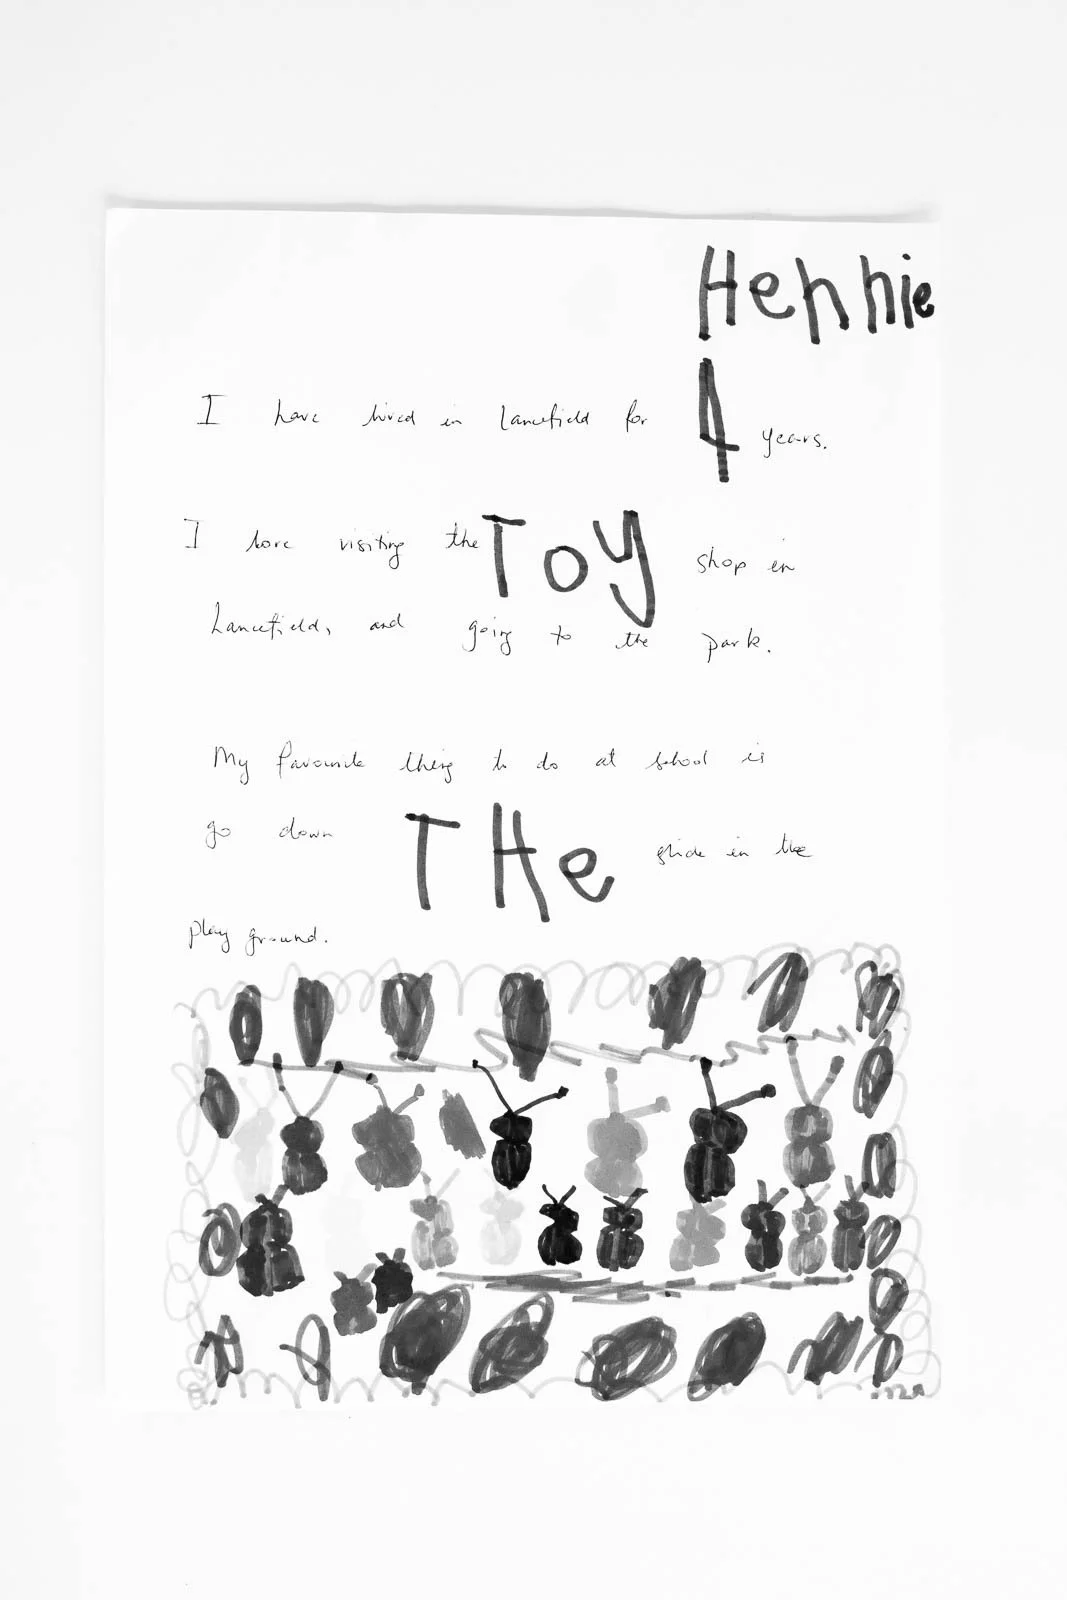 Hennie
I have lived in Lancefield for 4 years.
I love visiting the Toy shop in
Lancefield, and going to the park.
My favourite thing to do at school is
go down THe slide in the
play ground.